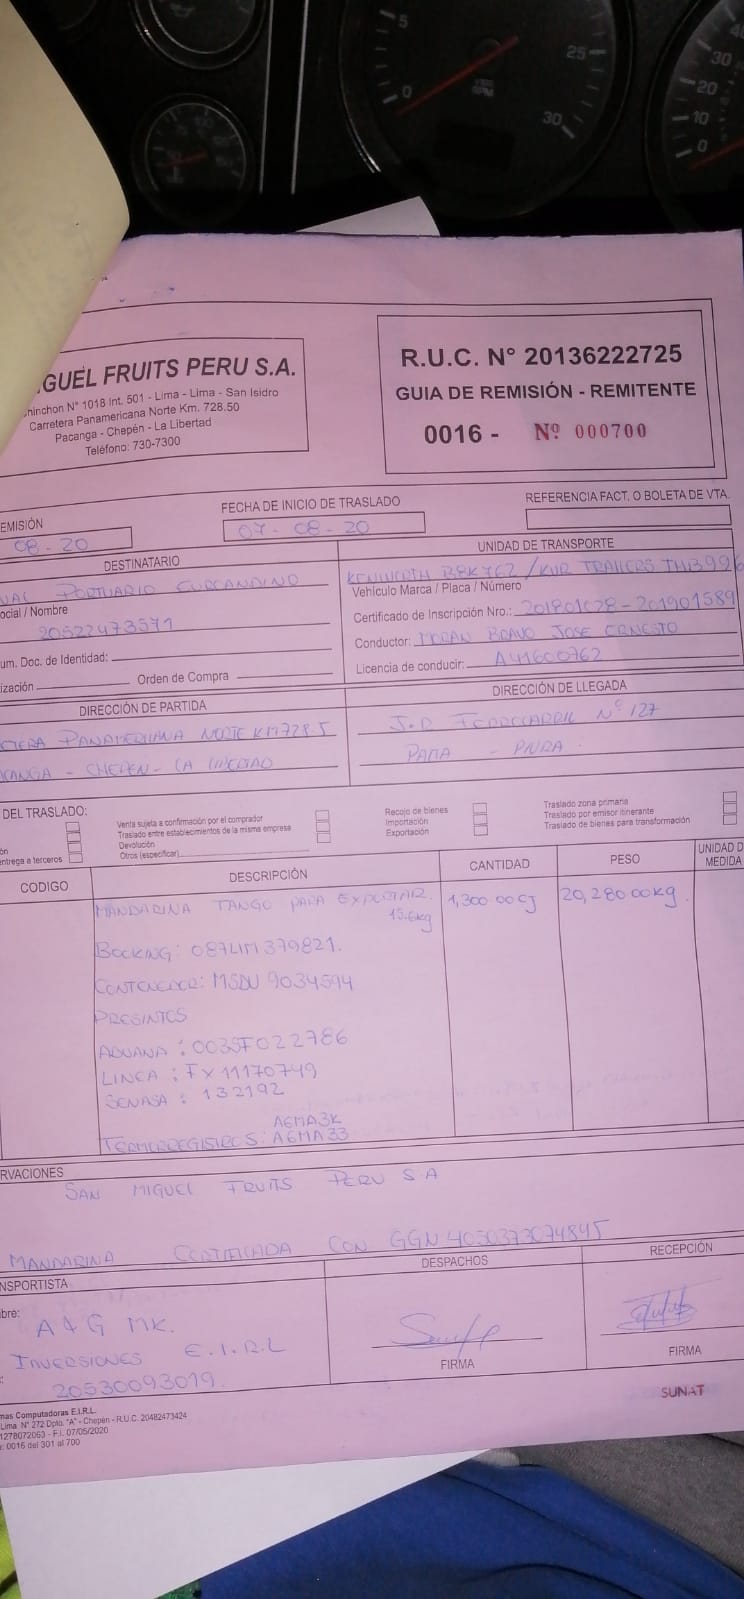 5
0
25
30
30
20
10
0
GUEL FRUITS PERU S.A.
hinchon N° 1018 Int. 501 - Lima - Lima - San Isidro
Carretera Panamericana Norte Km. 728.50
Pacanga - Chepén - La Libertad
Teléfono: 730-7300
R.U.C. N° 20136222725
GUIA DE REMISIÓN - REMITENTE
0016 - Nº 000700
EMISIÓN
08-20
FECHA DE INICIO DE TRASLADO
07-08-20
REFERENCIA FACT. O BOLETA DE VTA.
DESTINATARIO
PORTUARIO
ocial / Nombre
20522473571
um. Doc. de Identidad:
ización Orden de Compra
UNIDAD DE TRANSPORTE
KENWORTH / KUR TRAILERS
Vehículo Marca / Placa / Número
Certificado de Inscripción Nro.: - 201901589
Conductor: MORAN BRAVO JOSE ERNESTO
Licencia de conducir: A41600762
DIRECCIÓN DE PARTIDA
TERA PANAMERICANA NORTE KM 728.5
CANGA - CHEPEN - LA LIBERTAD
DIRECCIÓN DE LLEGADA
FERROCARRIL N° 127
PAITA - PIURA
DEL TRASLADO:
ón
entrega a terceros
Venta sujeta a confirmación por el comprador
Traslado entre establecimientos de la misma empresa
Devolución
Otros (especificar)
Recojo de bienes
Importación
Exportación
Traslado zona primaria
Traslado por emisor itinerante
Traslado de bienes para transformación
CODIGO DESCRIPCIÓN CANTIDAD PESO UNIDAD D
MEDIDA
MANDARINA TANGO PARA EXPORTAR. 1,300.00 CJ 20,280.00 kg.
15.6kg
BOOKING: 087LIM379821.
CONTENEDOR: MSDU 9034594
PRESINTOS
ADUANA : 003SF022786
LINEA : FX11170749
SENASA : 132192
A6MA3K
TERMORREGISTROS: A6MA33
RVACIONES
SAN MIGUEL FRUITS PERU S A
MANDARINA CERTIFICADA CON GGN 4050373074845
NSPORTISTA
bre:
A & G MK.
INVERSIONES E.I.R.L
20530093019
DESPACHOS
FIRMA
RECEPCIÓN
FIRMA
SUNAT
mas Computadoras E.I.R.L.
Lima N° 272 Dpto. "A" - Chepén - R.U.C. 20482473424
1278072063 - F.I. 07/05/2020
0016 del 301 al 700